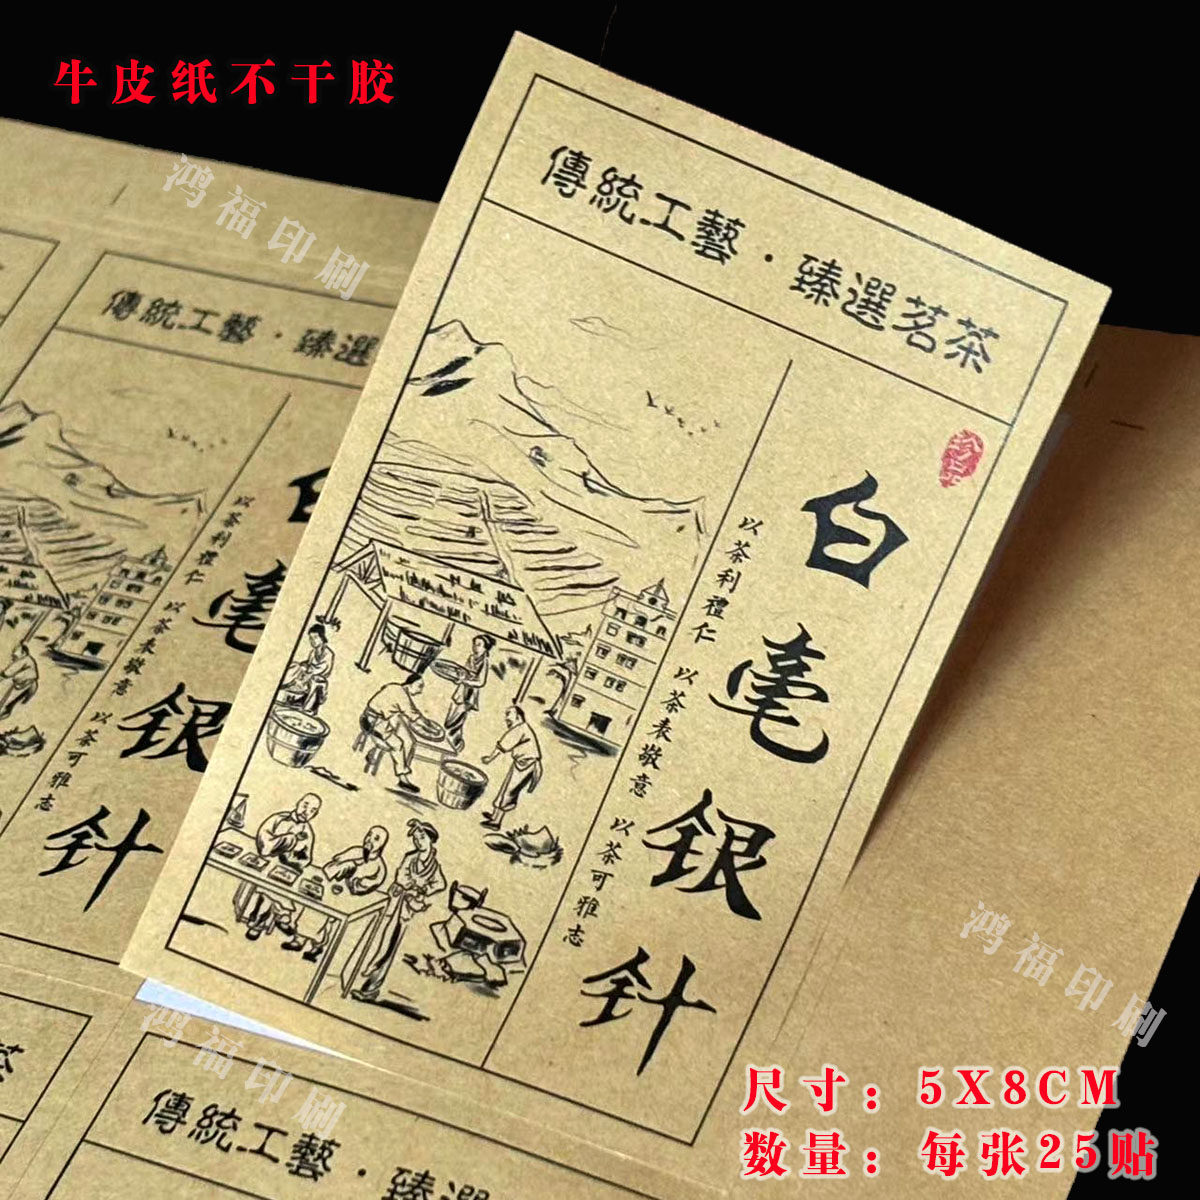 牛皮纸不干胶
鸿福印刷
傳統工藝·臻選茗茶
白毫銀针
以茶利禮仁 以茶表敬意 以茶可雅志
傳統工藝·臻選
白毫銀针
以茶利禮仁 以茶表敬意 以茶可雅志
鸿福印刷
鸿福印刷
茶
傳統工藝·臻選
尺寸：5X8CM
数量：每张25贴